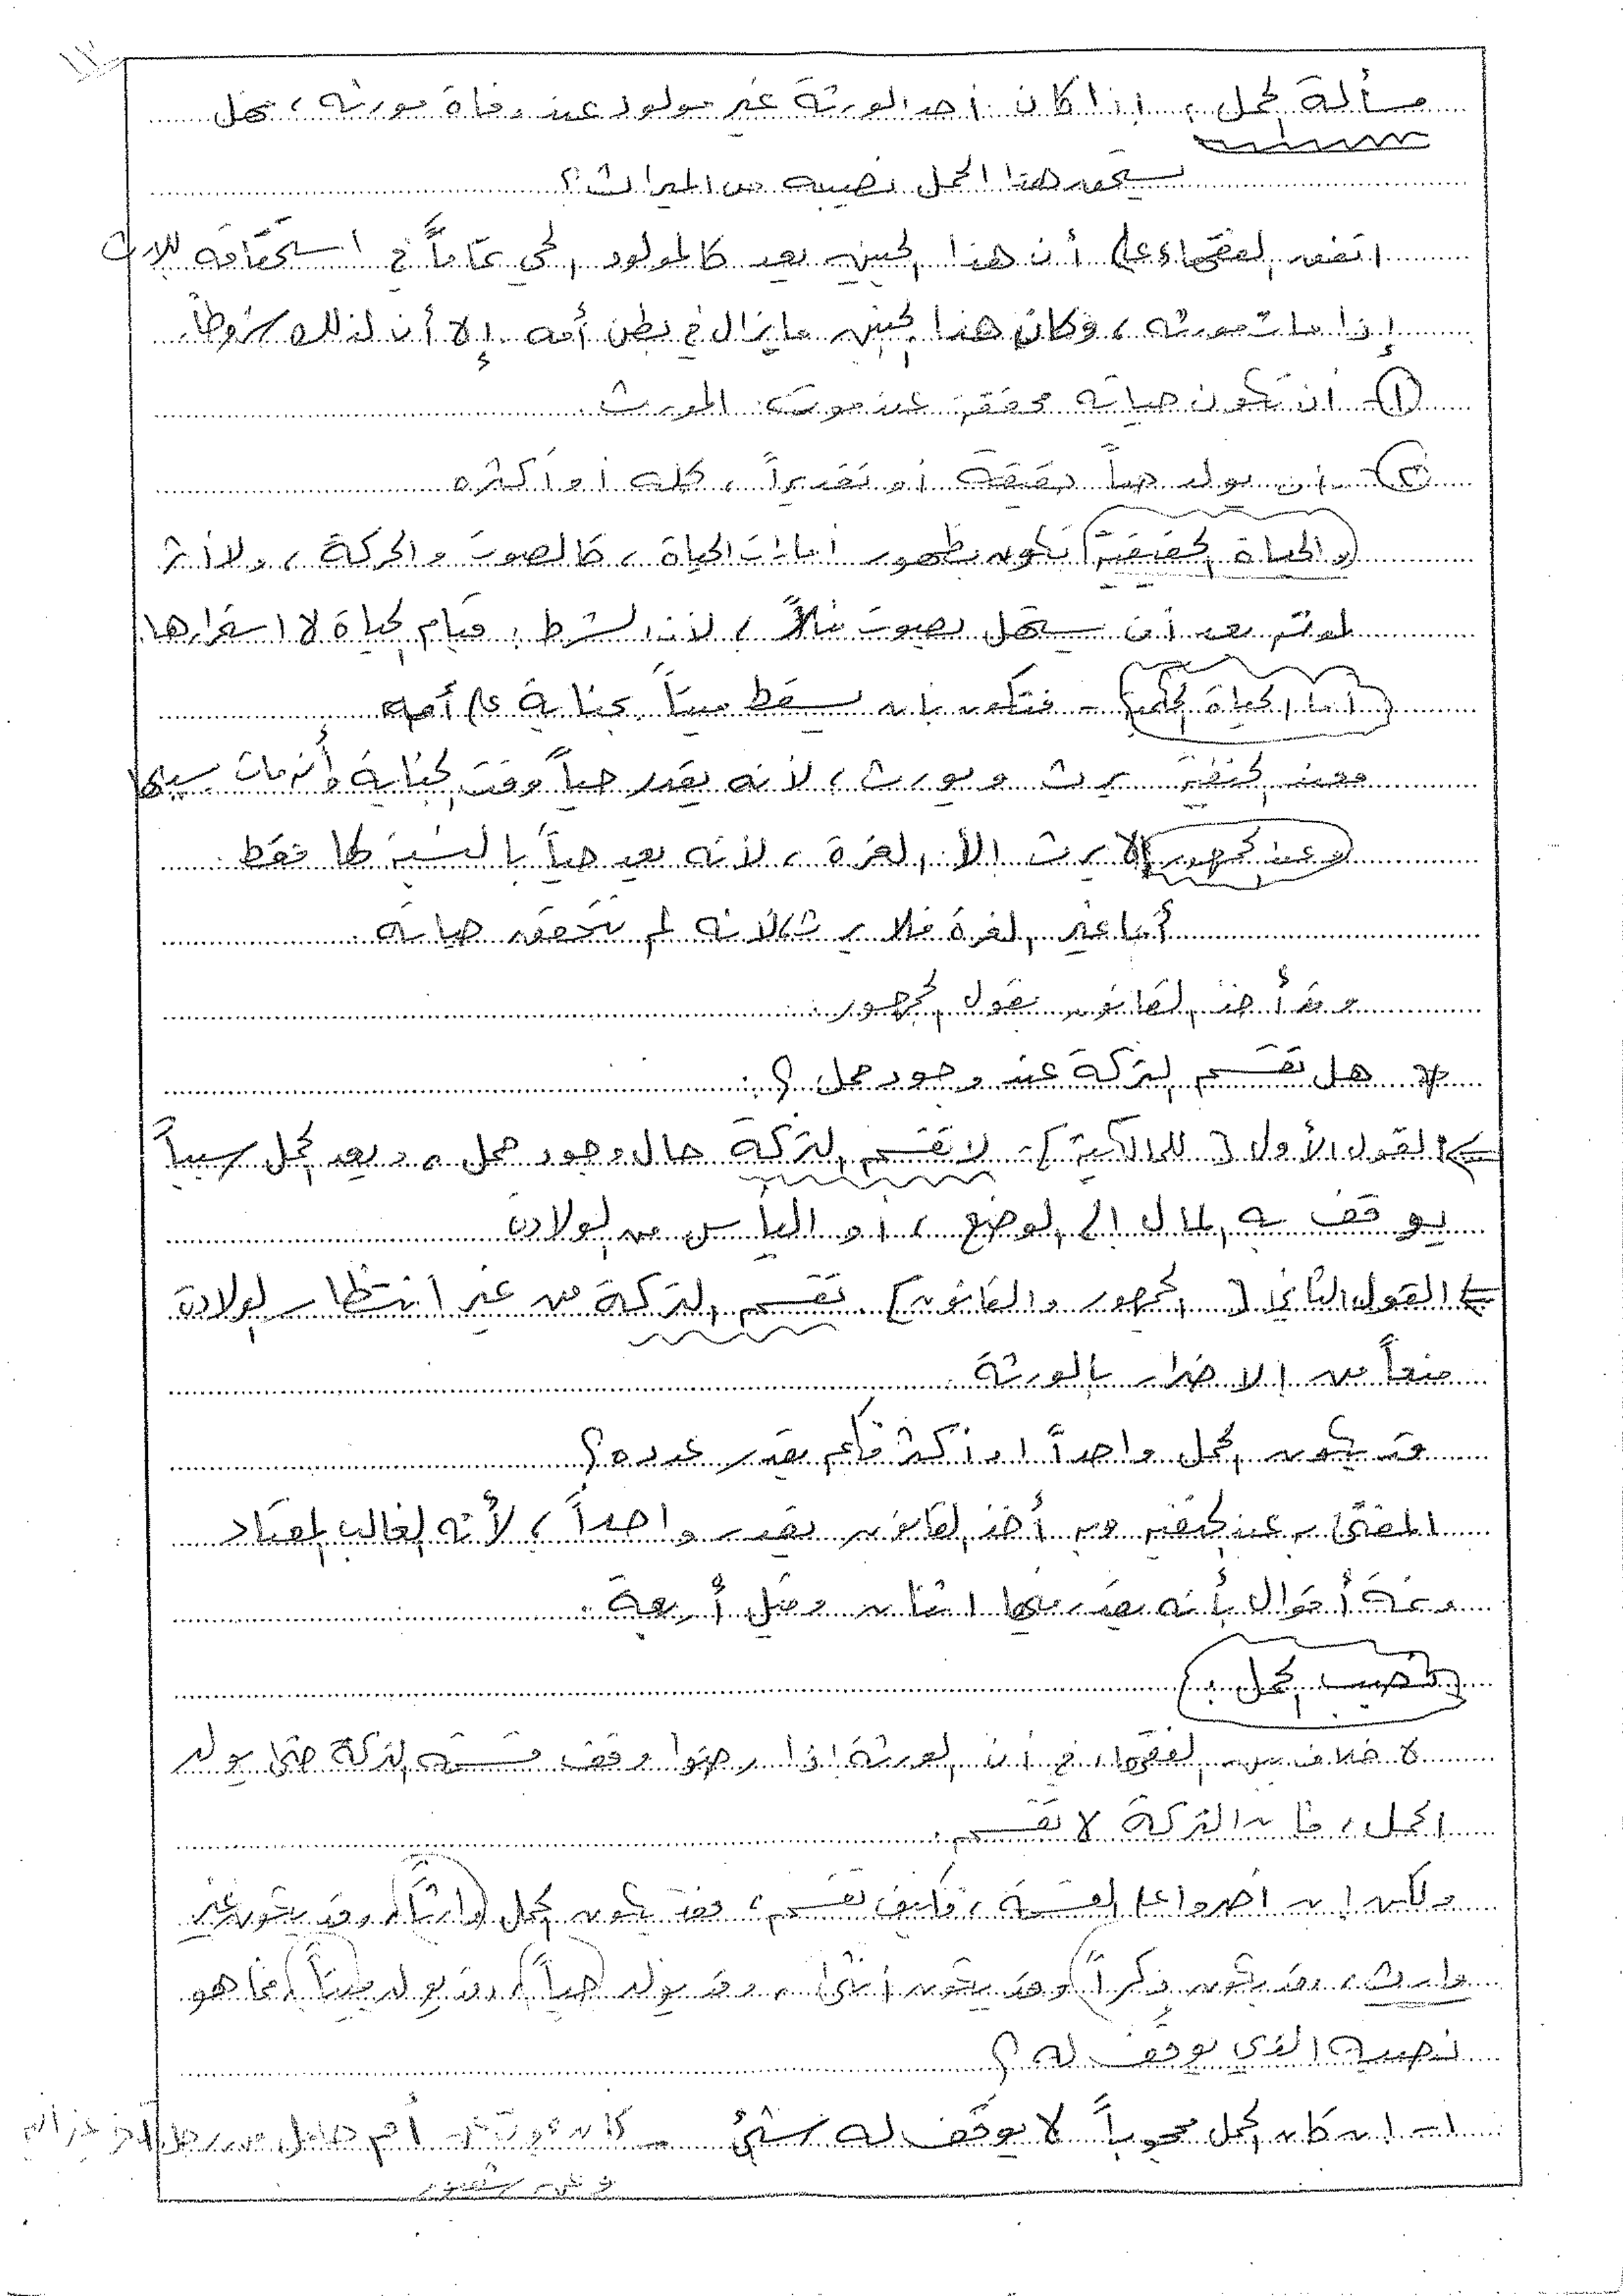 مسألة الحمل: إذا كان أحد الورثة غير مولود عند وفاة مورثه، فهل
يستحق هذا الحمل نصيبه من الميراث؟
اتفق الفقهاء على أن هذا الجنين يعد كالمولود الحي تماماً في استحقاقه للإرث
إذا مات مورثه، وكان هذا الجنين ما يزال في بطن أمه إلا أن لذلك شروطاً
١- أن تكون حياته محققة عند موت المورث
٢- أن يولد حياً حقيقة أو تقديراً، كله أو أكثره
والحياة الحقيقية تكون بظهور أمارات الحياة، كالصوت والحركة، ولا أثر
لموته بعد أن يستهل بصوت مثلاً، لأن الشرط قيام الحياة لا استمرارها
أما الحياة - فتكون بأن يسقط ميتاً بجناية على أمه
فعند الحنفية يرث ويورث، لأنه يقدر حياً وقت الجناية وأنه مات بسببها
وعند الجمهور لا يرث إلا الغرة، لأنه يعد حياً بالنسبة لها فقط
أما غير الغرة فلا يرث لأنه لم تتحقق حياته
وقد أخذ القانون بقول الجمهور
* هل تقسم التركة عند وجود حمل؟
القول الأول (للمالكية): لا تقسم التركة حال وجود حمل، ويعد الحمل سبباً
يوقف به المال إلى الوضع، أو اليأس من الولادة
القول الثاني (الجمهور والقانون) تقسم التركة من غير انتظار الولادة
منعاً من الإضرار بالورثة
قد يكون الحمل واحداً أو أكثر فكم يقدر عدده؟
المفتى به عند الحنفية وبه أخذ القانون يقدر واحداً، لأنه الغالب المعتاد
وثمة أقوال بأنه اثنان وقيل أربعة.
نصيب الحمل:
لا خلاف بين الفقهاء في أن الورثة إذا رضوا وقف قسمة التركة حتى يولد
الحمل، فإن التركة لا تقسم.
ولكن إن أصروا على القسمة، فكيف تقسم، فقد يكون الحمل وارثاً وقد يكون غير
وارث، وقد يكون ذكراً وقد يكون أنثى، وقد يولد حياً، وقد يولد ميتاً فما هو
نصيبه الذي يوقف له؟
١- إن كان الحمل محجوباً لا يوقف له شيئ - كأن يموت عن أم حامل من